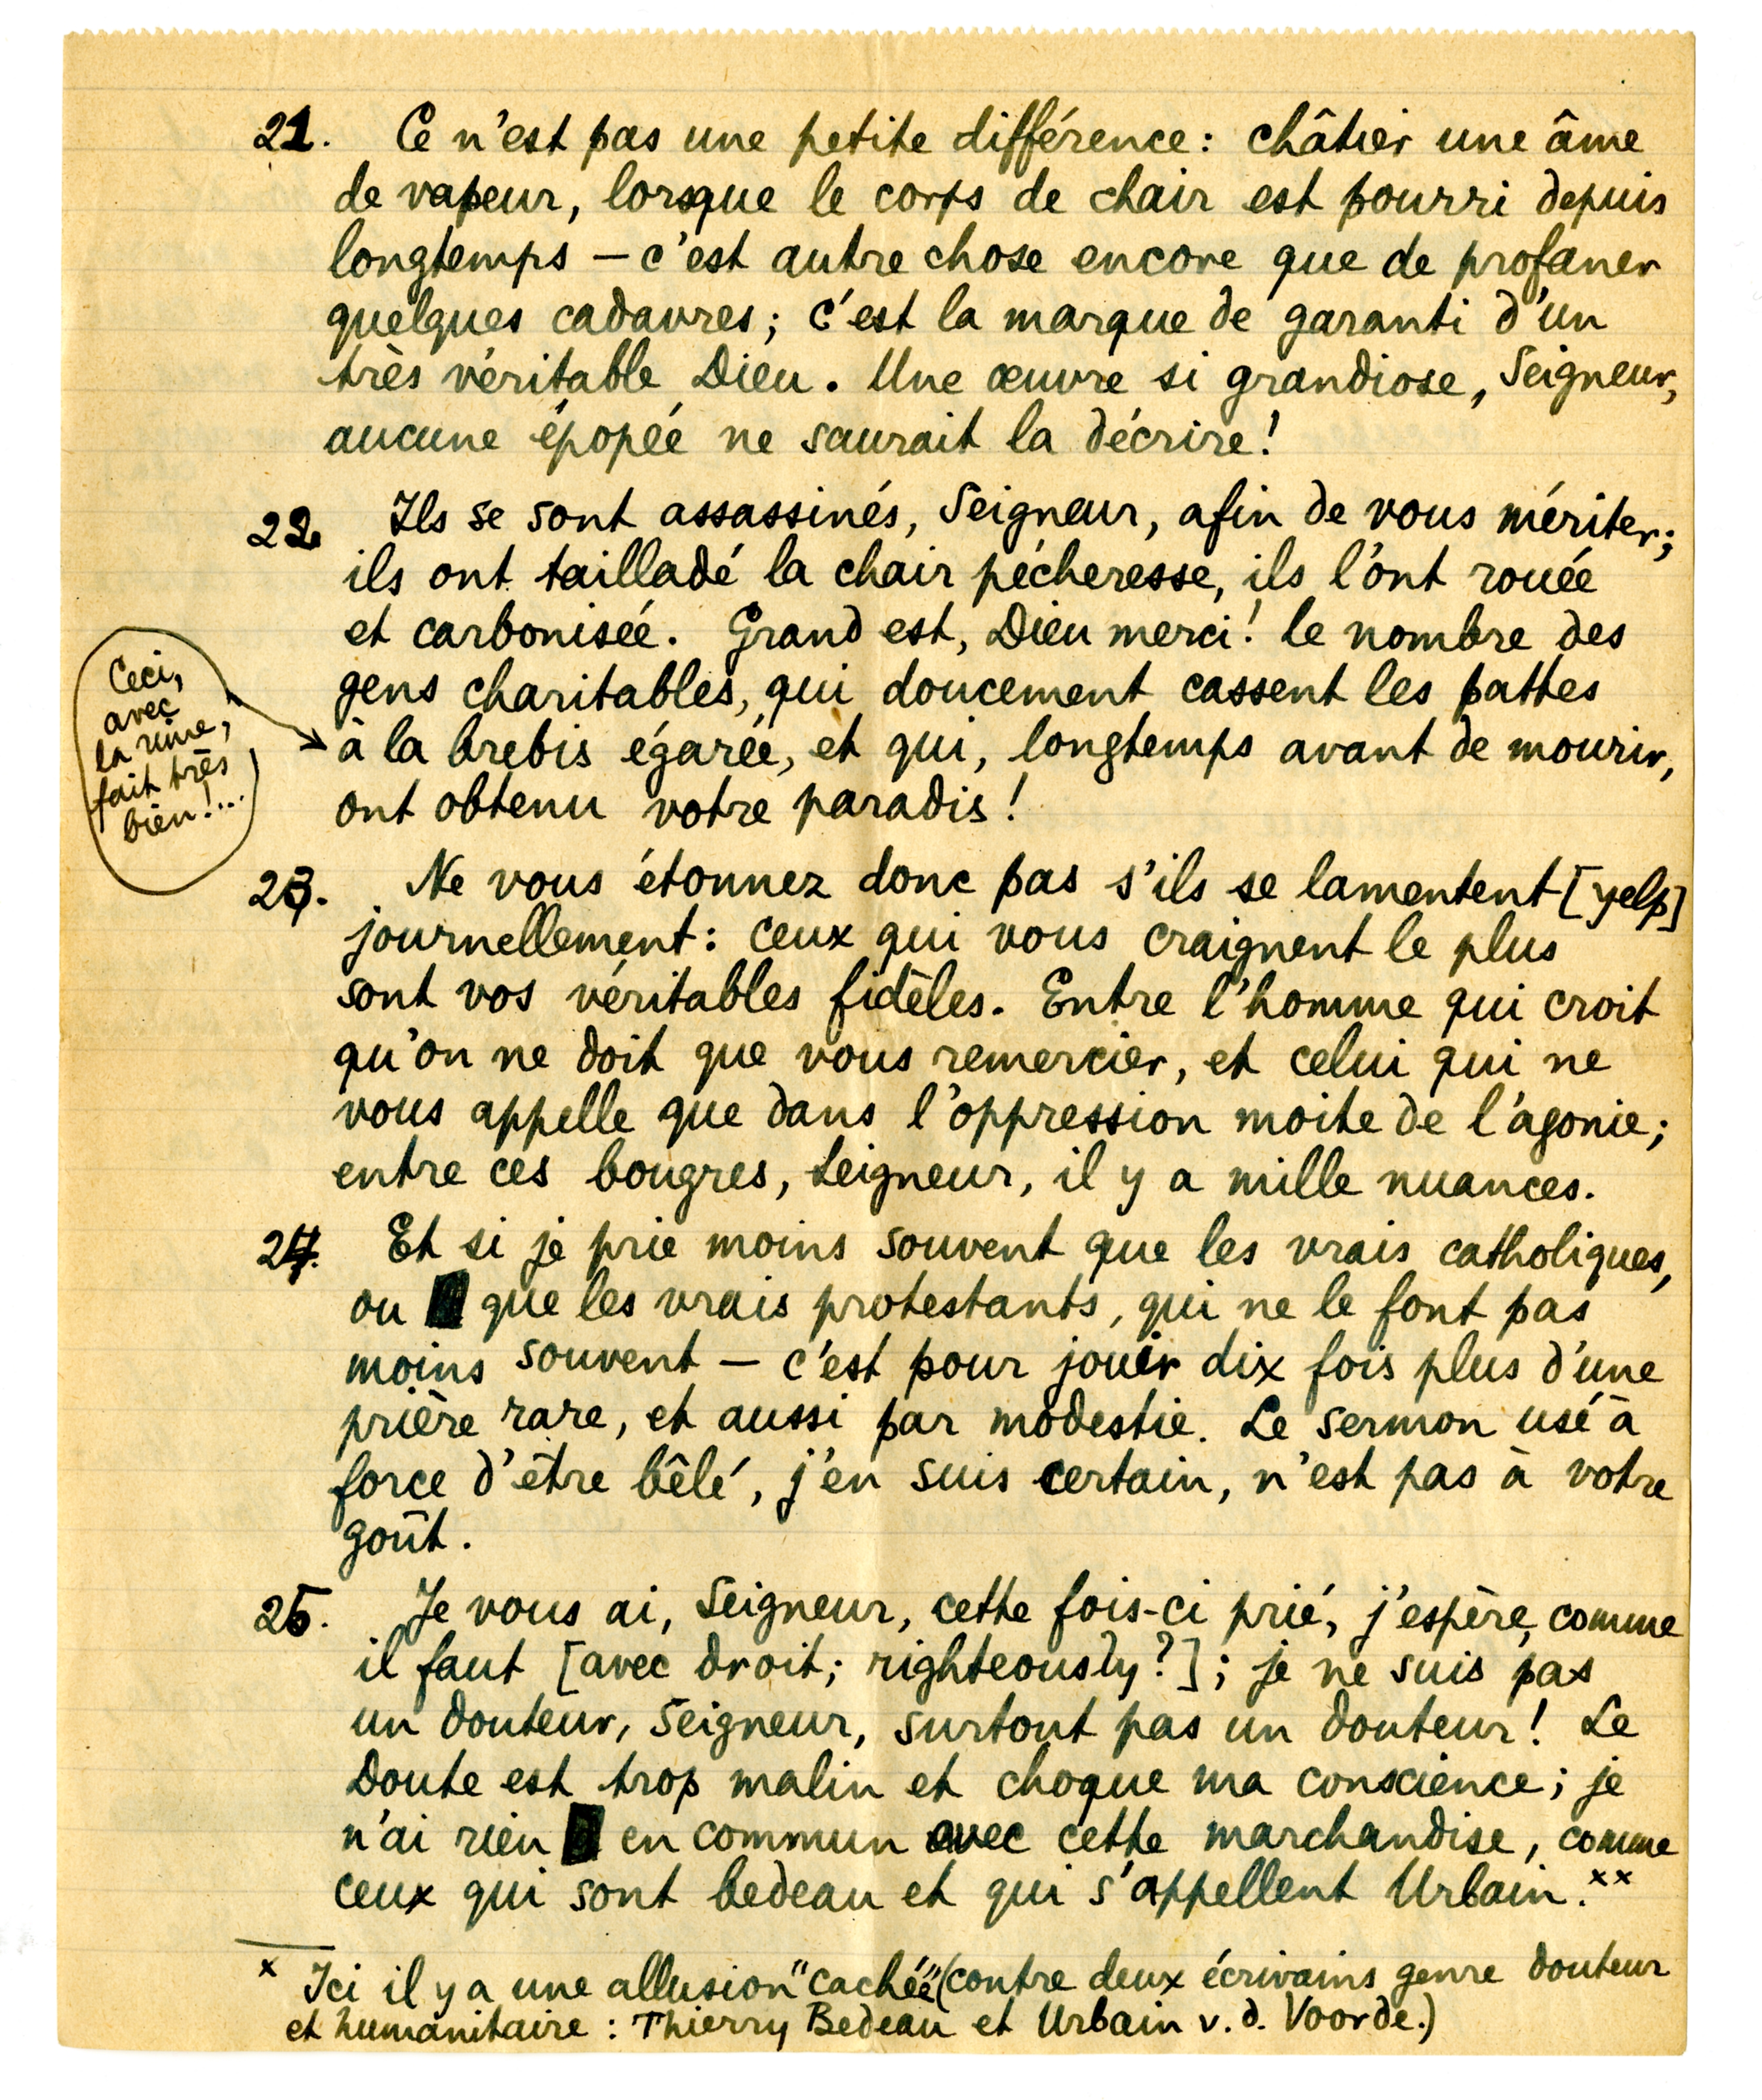 21. Ce n'est pas une petite différence: châtier une âme
de vapeur, lorsque le corps de chair est pourri depuis
longtemps – c'est autre chose encore que de profaner
quelques cadavres; c'est la marque de garanti d'un
très véritable Dieu. Une œuvre si grandiose, Seigneur,
aucune épopée ne saurait la décrire!
22. Ils se sont assassinés, Seigneur, afin de vous mériter;
ils ont tailladé la chair pécheresse, ils l'ont rouée
et carbonisée. Grand est, Dieu merci! le nombre des
gens charitables, qui doucement cassent les pattes
à la brebis égarée, et qui, longtemps avant de mourir,
ont obtenu votre paradis!
Ceci,
avec
la rime,
fait très
bien!...
23. Ne vous étonnez donc pas s'ils se lamentent [yelp]
journellement: ceux qui vous craignent le plus
sont vos véritables fidèles. Entre l'homme qui croit
qu'on ne doit que vous remercier, et celui qui ne
vous appelle que dans l'oppression moite de l'agonie;
entre ces bougres, Seigneur, il y a mille nuances.
24. Et si je prie moins souvent que les vrais catholiques,
ou que les vrais protestants, qui ne le font pas
moins souvent – c'est pour jouir dix fois plus d'une
prière rare, et aussi par modestie. Le sermon usé à
force d'être bêlé, j'en suis certain, n'est pas à votre
goût.
25. Je vous ai, Seigneur, cette fois-ci prié, j'espère, comme
il faut [avec droit; righteously?]; je ne suis pas
un douteur, Seigneur, surtout pas un douteur! Le
Doute est trop malin et choque ma conscience; je
n'ai rien en commun avec cette marchandise, comme
ceux qui sont bedeau et qui s'appellent Urbain.xx
x Ici il y a une allusion "cachée" (contre deux écrivains genre douteur
et humanitaire: Thierry Bedeau et Urbain v.d. Voorde.)